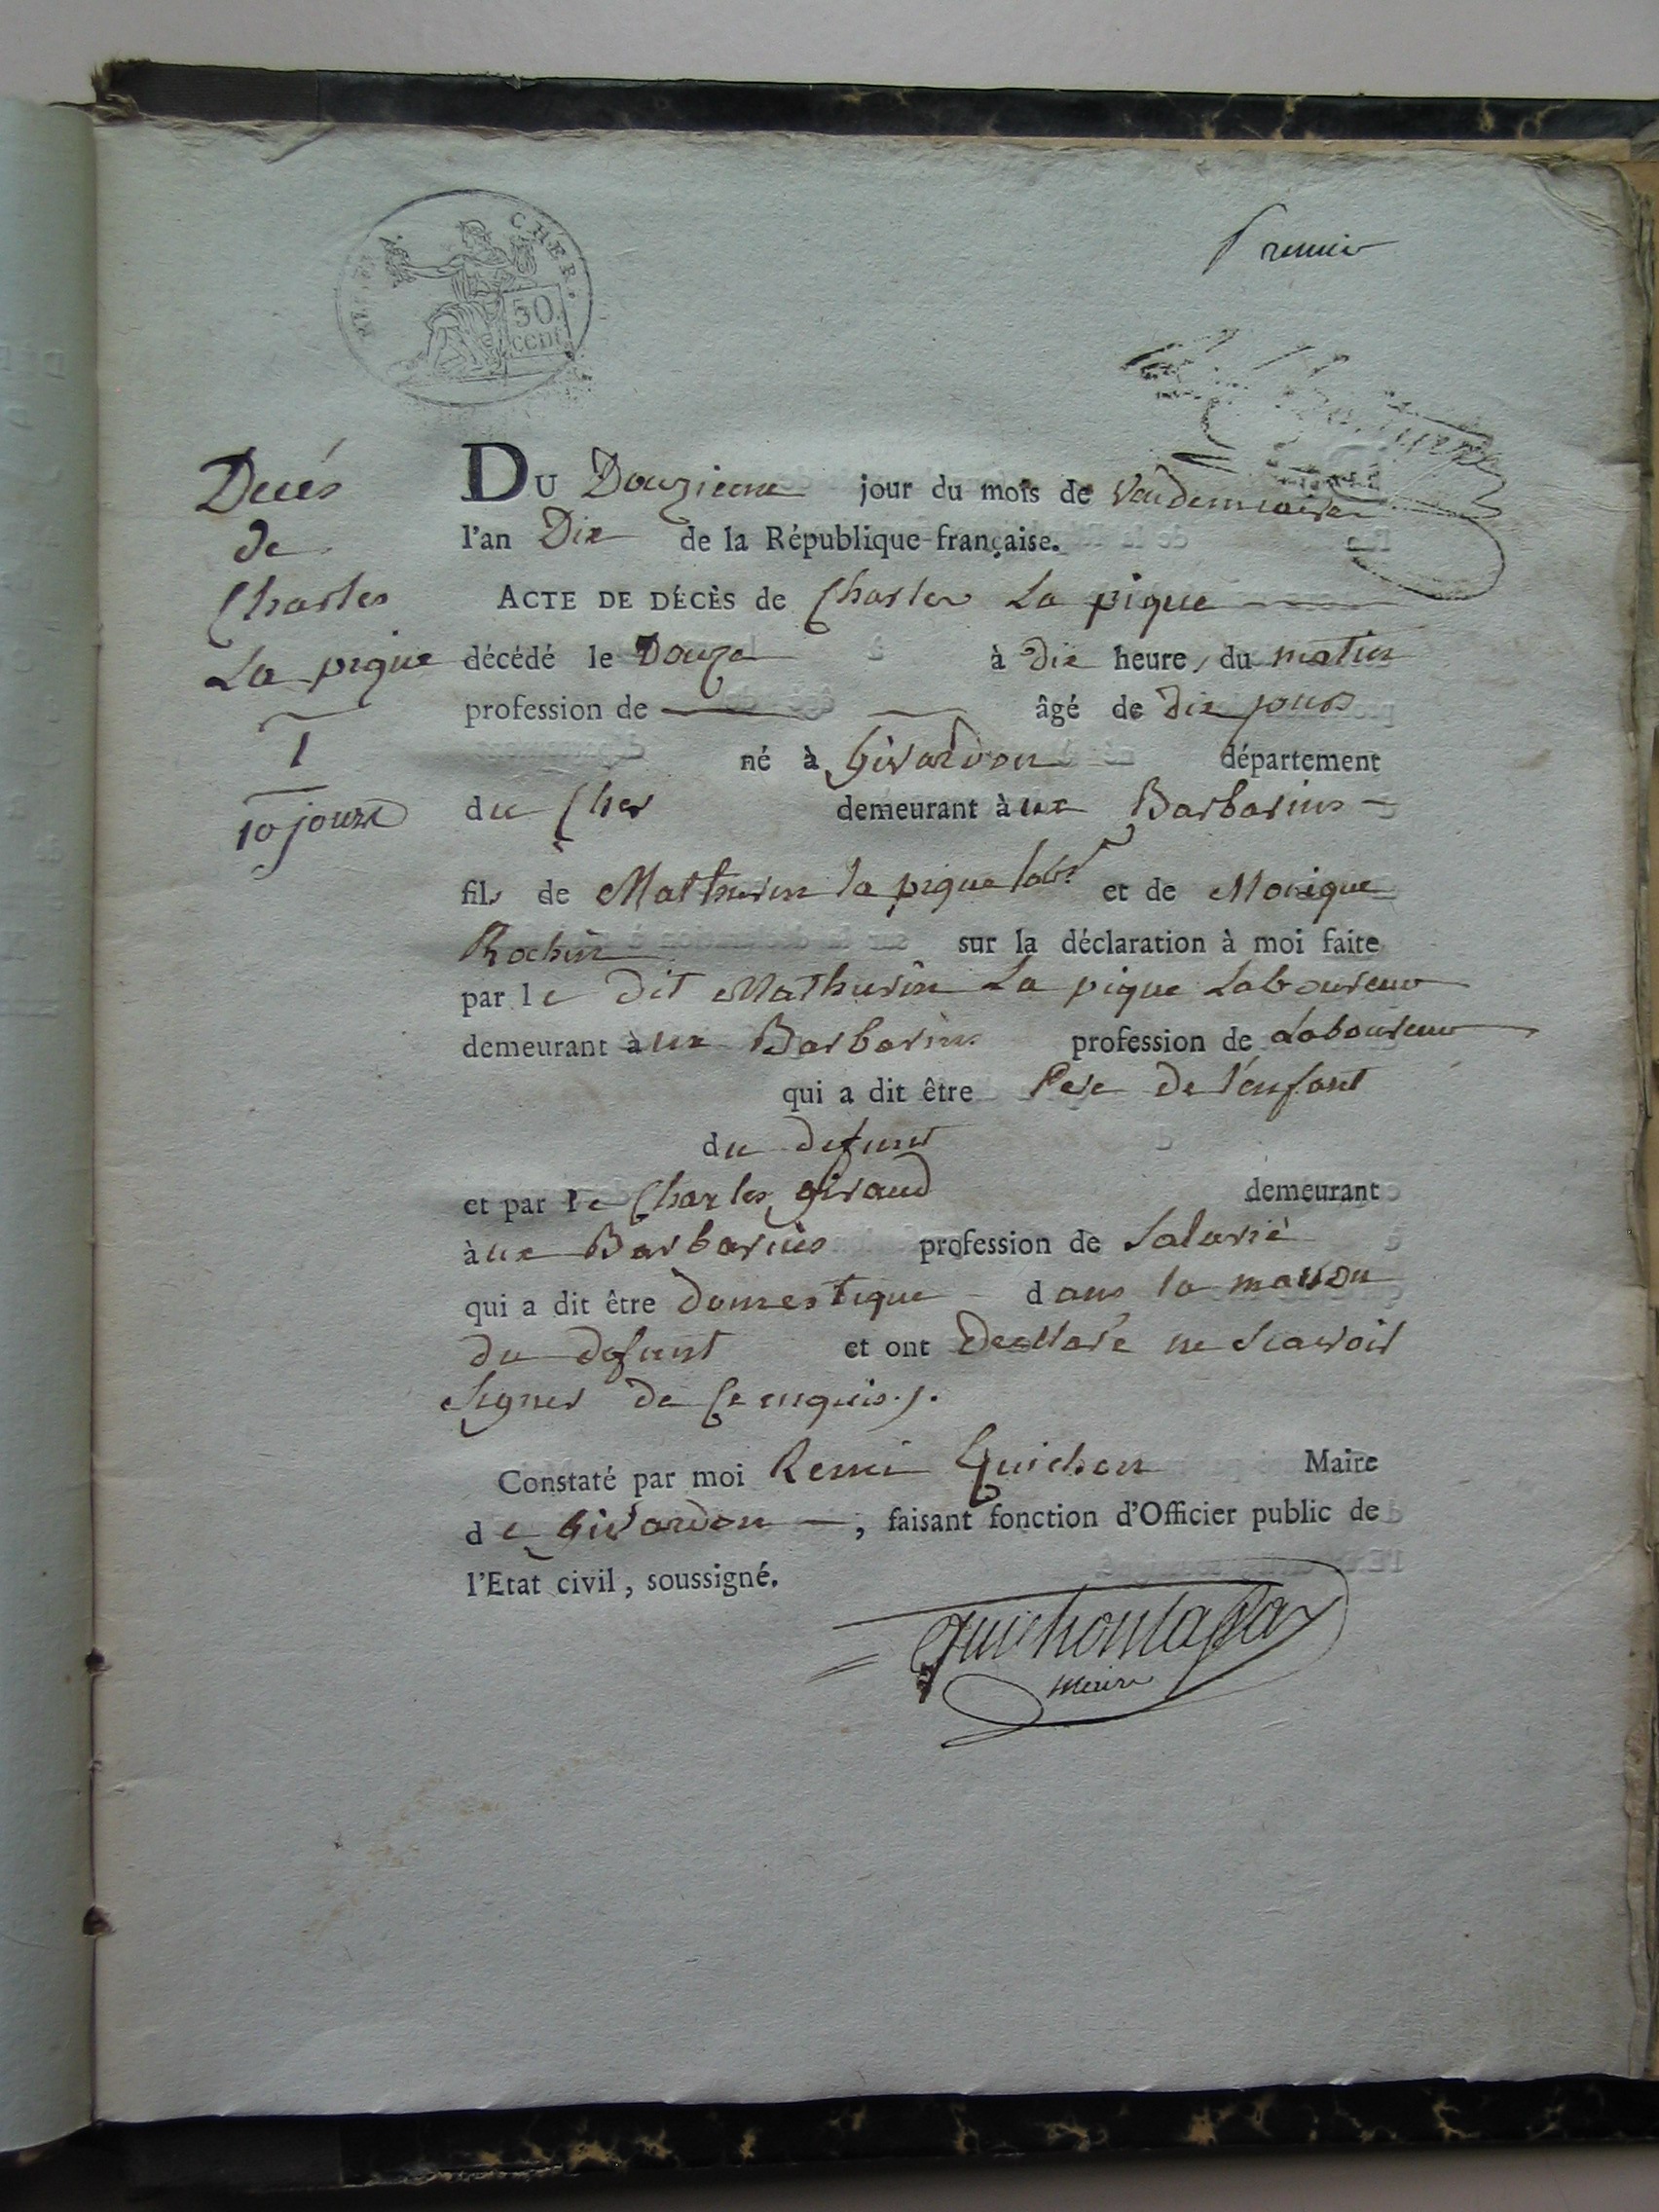 CHER.
50
cent
Premier
Decés
de
Charles
La pique
1
10 jours
DU Douzieme jour du mois de Vendemiaire
l'an Dix de la République française.
ACTE DE DÉCÈS de Charles La pique
décédé le Douze à dix heures du matin
profession de âgé de dix jours
né à Givardon département
du Cher demeurant àux Barbarins
fils de Mathurin la pique labr et de Monique
Rochin sur la déclaration à moi faite
par le dit Mathurin La pique Laboureur
demeurant àux Barbarins profession de Laboureur
qui a dit être Pere de l'enfant
du defunt
et par le Charles giraud demeurant
àux Barbarins profession de Salarié
qui a dit être domestique dans la maison
du defunt et ont declaré ne scavoir
signer de ce enquis./.
Constaté par moi Remi Guichon Maire
de Givardon, faisant fonction d'Officier public de
l'Etat civil, soussigné.
maire